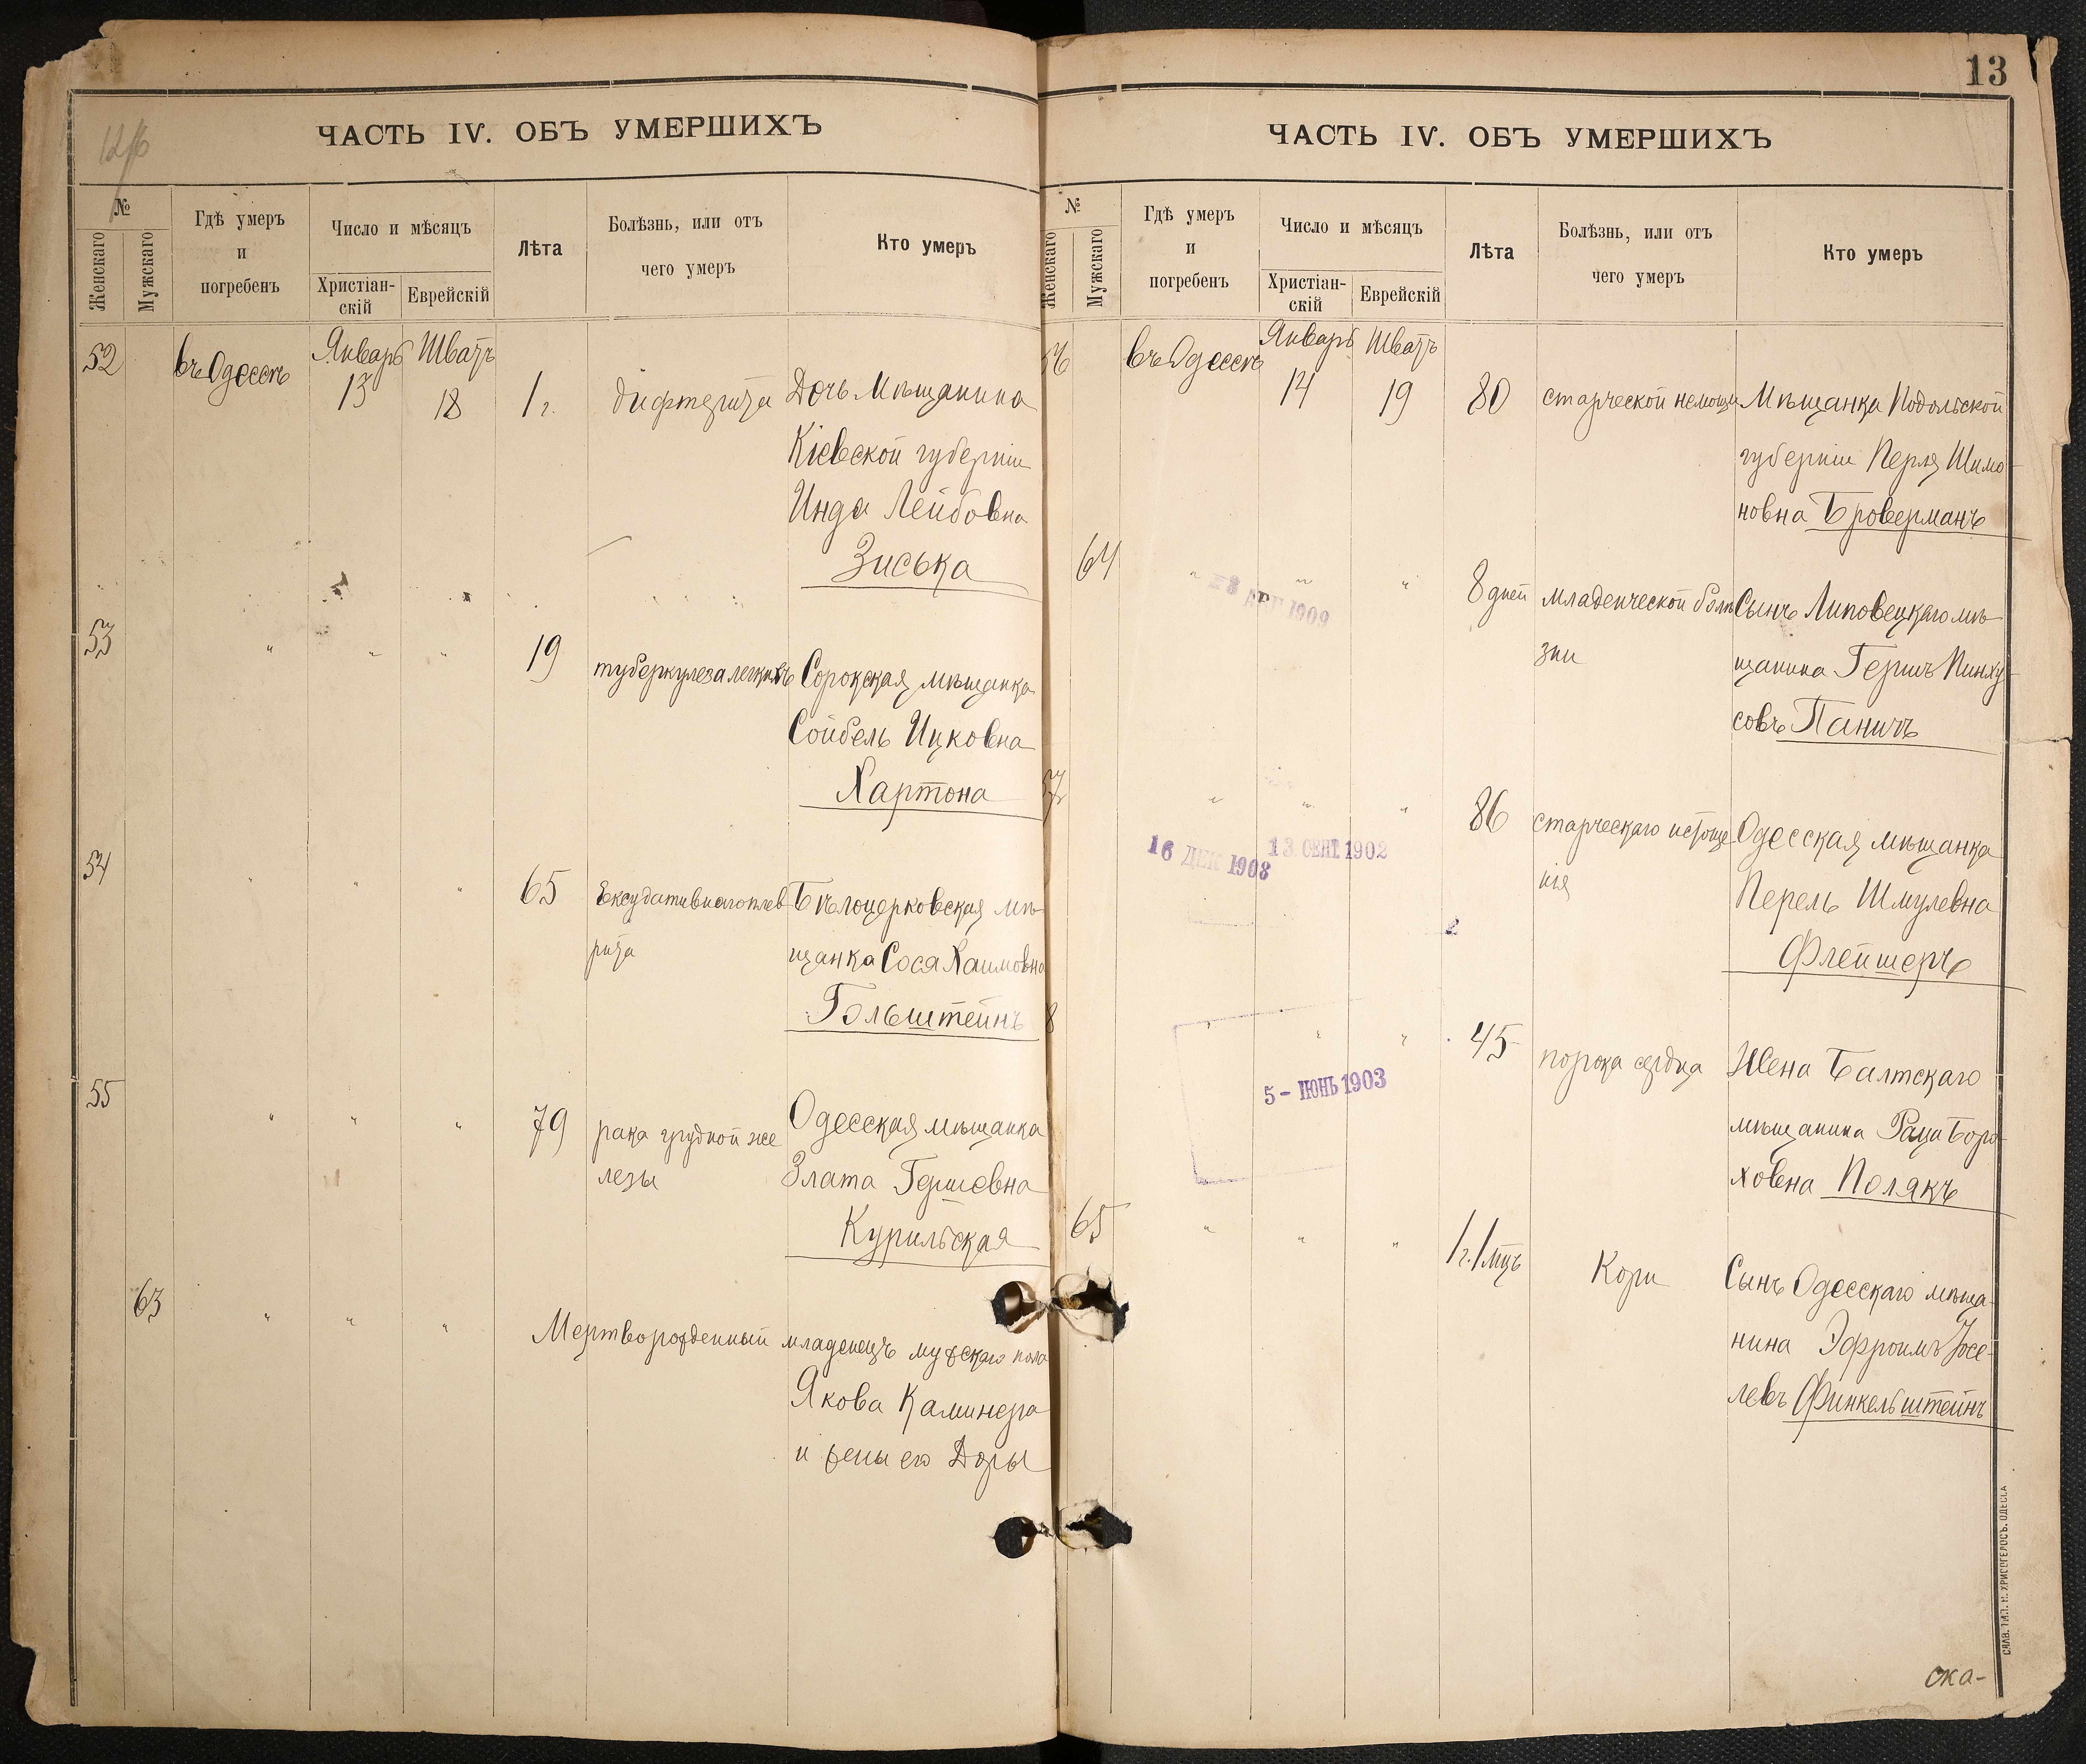 12/6
ЧАСТЬ IV. ОБЪ УМЕРШИХЪ
№
Женскаго
Мужскаго
Гдѣ умеръ
и
погребенъ
Число и мѣсяцъ
Христіан-
скій
Еврейскій
Лѣта
Болѣзнь, или отъ
чего умеръ
Кто умеръ
52 въ Одессѣ Январь Шватъ
13 18 1 г. дифтерита Дочь Мѣщанина
Кіевской губерніи
Инда Лейбовна
Зиська
53 " " " 19 туберкулеза легкихъ Сорокская мѣщанка
Сойбель Ицковна
Хартона
54 " " " 65 Ексудативнаго плев Бѣлоцерковская мѣ-
рита щанка Сося Хаимовна
Гольштейнъ
55 " " " 79 рака грудной же Одесская мѣщанка
лезы Злата Гершевна
Курильская
63 " " " Мертворожденный младенецъ мужскаго пола
Якова Каминера
и жены его Доры
13
ЧАСТЬ IV. ОБЪ УМЕРШИХЪ
№
Женскаго
Мужскаго
Гдѣ умеръ
и
погребенъ
Число и мѣсяцъ
Христіан-
скій
Еврейскій
Лѣта
Болѣзнь, или отъ
чего умеръ
Кто умеръ
56 въ Одессѣ Январь Шватъ
14 19 80 старческой немощи Мѣщанка Подольской
губерніи Перля Шимо-
новна Броверманъ
64 " " " 8 дней младенческой болѣ Сынъ Липовецкаго мѣ-
зни щанина Гершъ Пинху-
совъ Паничъ
1909
57 " " " 86 старческаго истоще Одесская мѣщанка
нія Перель Шмулевна
Флейшеръ
16 ДЕК 1908
13 СЕНТ. 1902
8 " " " 45 порока сердца Жена Балтскаго
мѣщанина Раца Боро-
ховна Полякъ
5 - ІЮНЬ 1903
65 " " " 1 г. 1 мцъ Кори Сынъ Одесскаго мѣща-
нина Эфроимъ Іосе-
левъ Финкельштейнъ
СЛАВ. ТИП. Н. ХРИСОГЕЛОСЪ. ОДЕССА
ска-